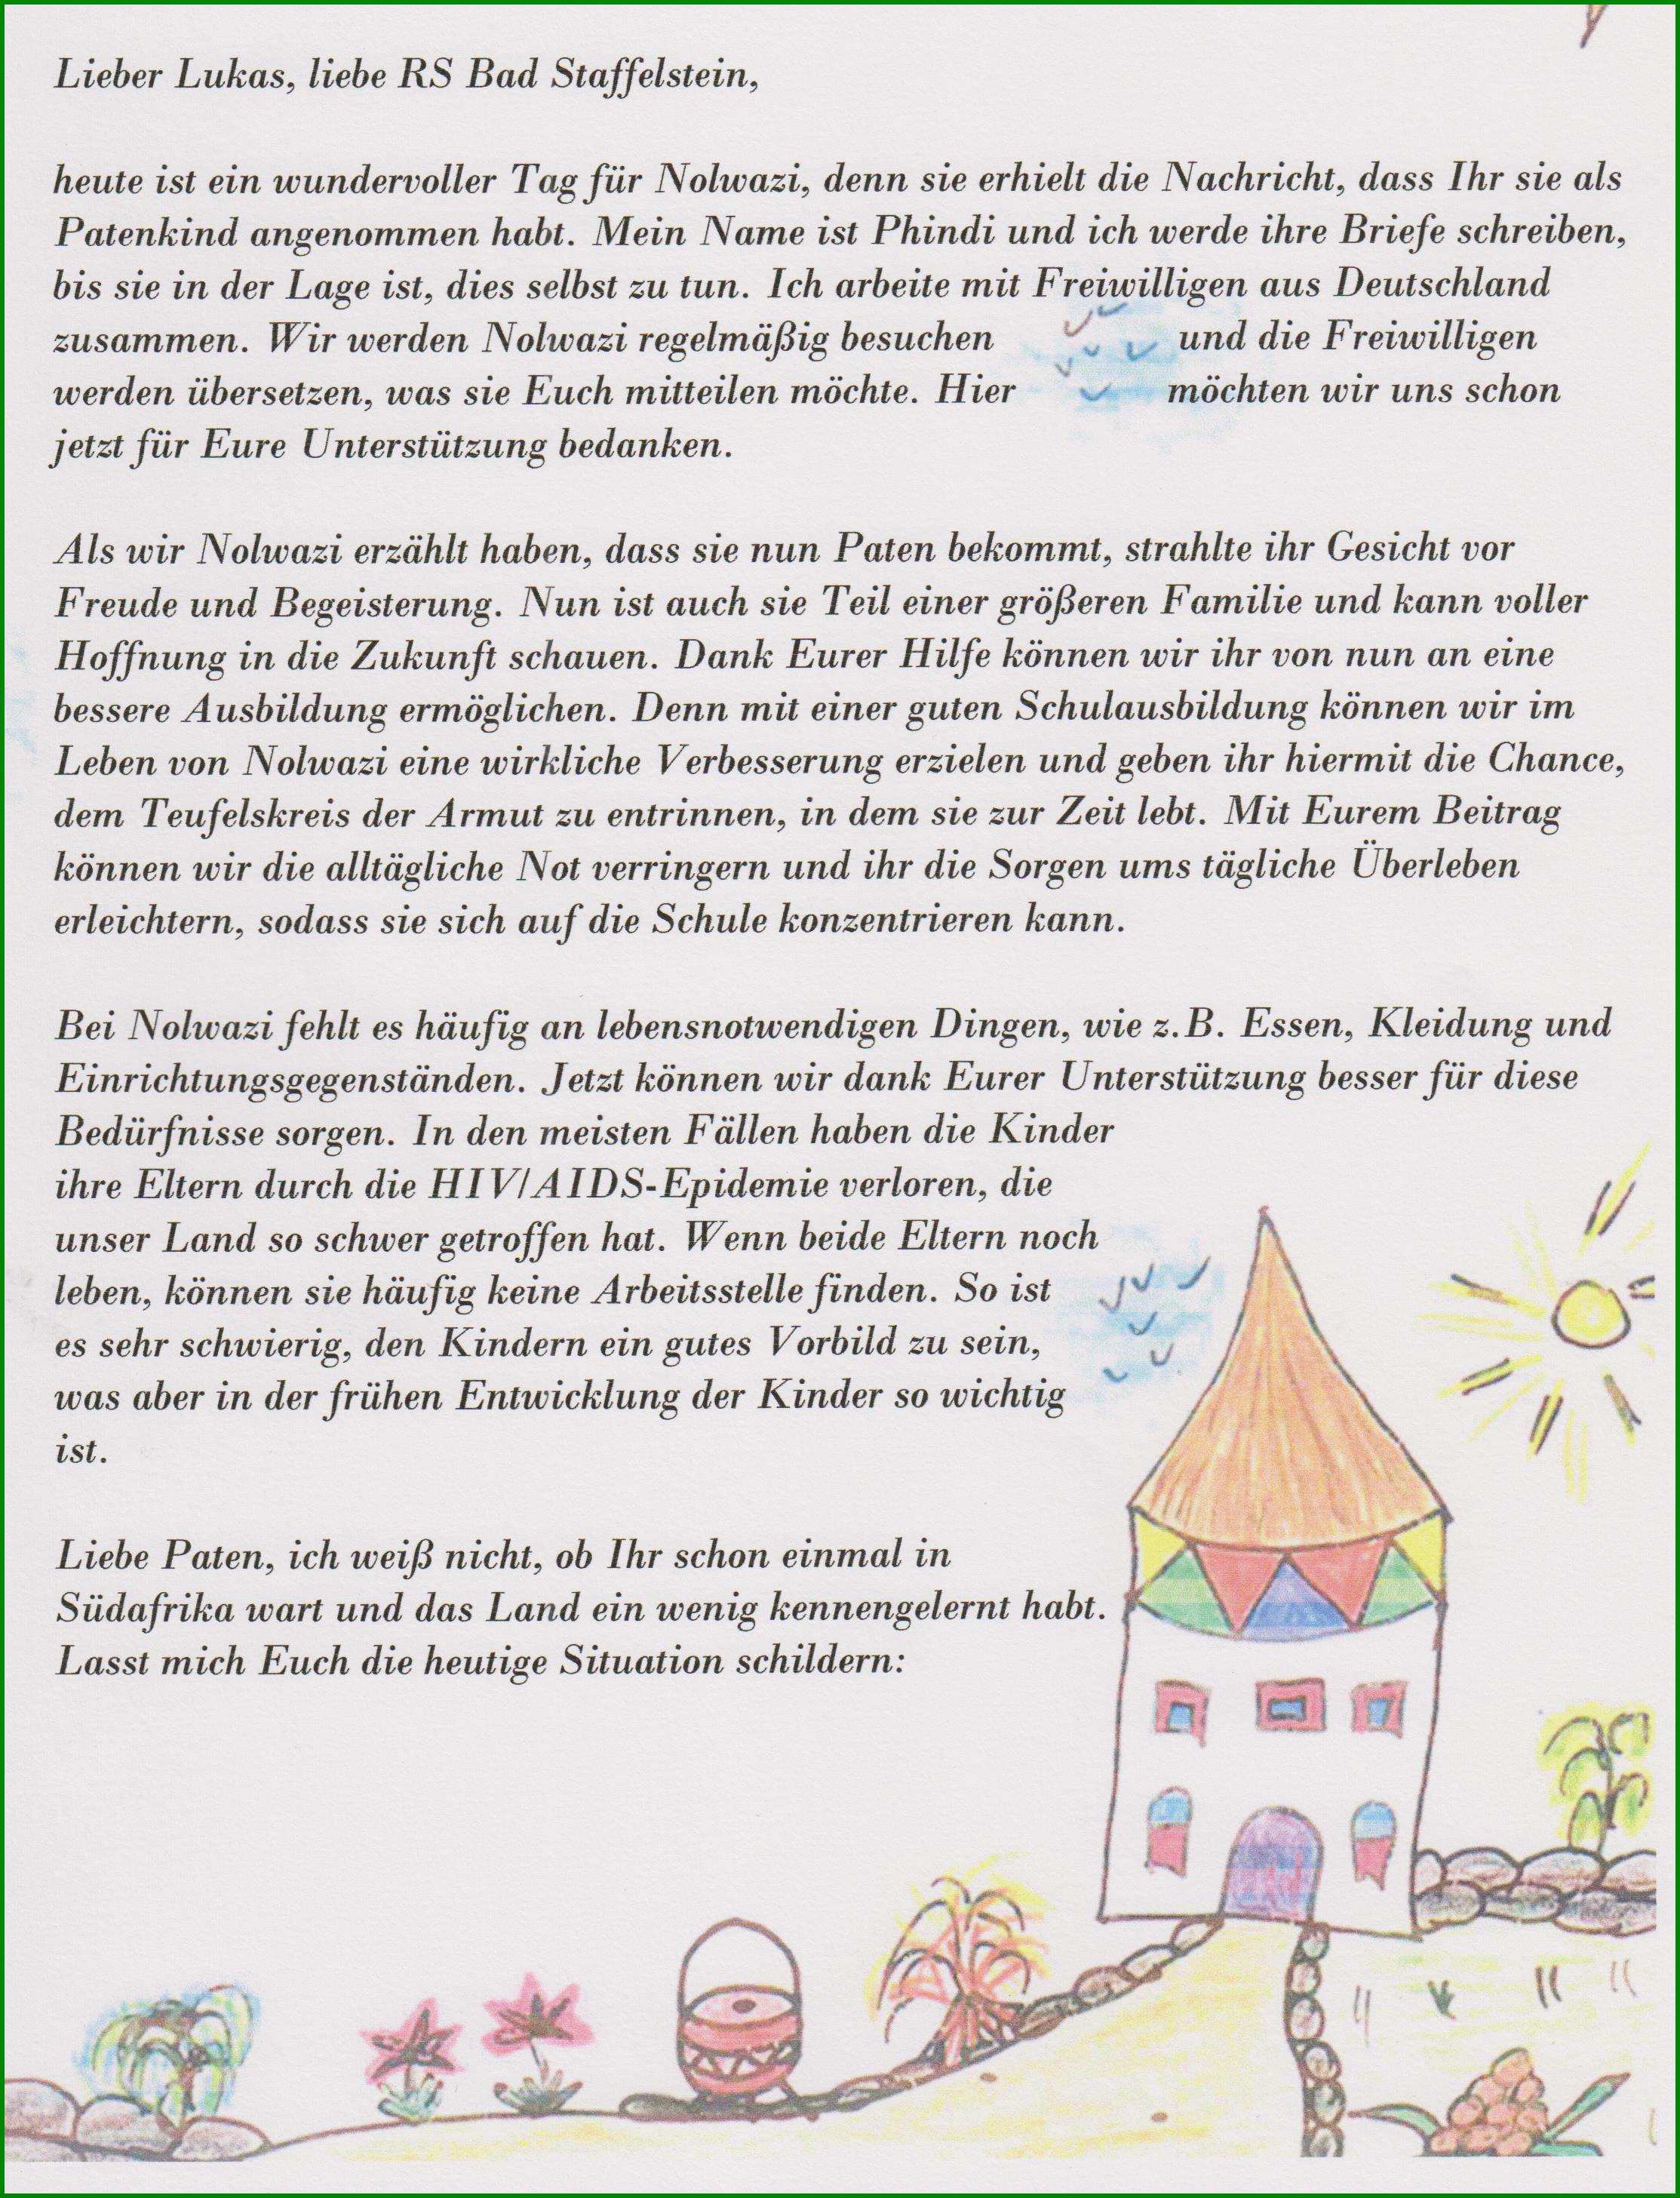 Lieber Lukas, liebe RS Bad Staffelstein,
heute ist ein wundervoller Tag für Nolwazi, denn sie erhielt die Nachricht, dass Ihr sie als
Patenkind angenommen habt. Mein Name ist Phindi und ich werde ihre Briefe schreiben,
bis sie in der Lage ist, dies selbst zu tun. Ich arbeite mit Freiwilligen aus Deutschland
zusammen. Wir werden Nolwazi regelmäßig besuchen und die Freiwilligen
werden übersetzen, was sie Euch mitteilen möchte. Hier möchten wir uns schon
jetzt für Eure Unterstützung bedanken.
Als wir Nolwazi erzählt haben, dass sie nun Paten bekommt, strahlte ihr Gesicht vor
Freude und Begeisterung. Nun ist auch sie Teil einer größeren Familie und kann voller
Hoffnung in die Zukunft schauen. Dank Eurer Hilfe können wir ihr von nun an eine
bessere Ausbildung ermöglichen. Denn mit einer guten Schulausbildung können wir im
Leben von Nolwazi eine wirkliche Verbesserung erzielen und geben ihr hiermit die Chance,
dem Teufelskreis der Armut zu entrinnen, in dem sie zur Zeit lebt. Mit Eurem Beitrag
können wir die alltägliche Not verringern und ihr die Sorgen ums tägliche Überleben
erleichtern, sodass sie sich auf die Schule konzentrieren kann.
Bei Nolwazi fehlt es häufig an lebensnotwendigen Dingen, wie z.B. Essen, Kleidung und
Einrichtungsgegenständen. Jetzt können wir dank Eurer Unterstützung besser für diese
Bedürfnisse sorgen. In den meisten Fällen haben die Kinder
ihre Eltern durch die HIV/AIDS-Epidemie verloren, die
unser Land so schwer getroffen hat. Wenn beide Eltern noch
leben, können sie häufig keine Arbeitsstelle finden. So ist
es sehr schwierig, den Kindern ein gutes Vorbild zu sein,
was aber in der frühen Entwicklung der Kinder so wichtig
ist.
Liebe Paten, ich weiß nicht, ob Ihr schon einmal in
Südafrika wart und das Land ein wenig kennengelernt habt.
Lasst mich Euch die heutige Situation schildern: